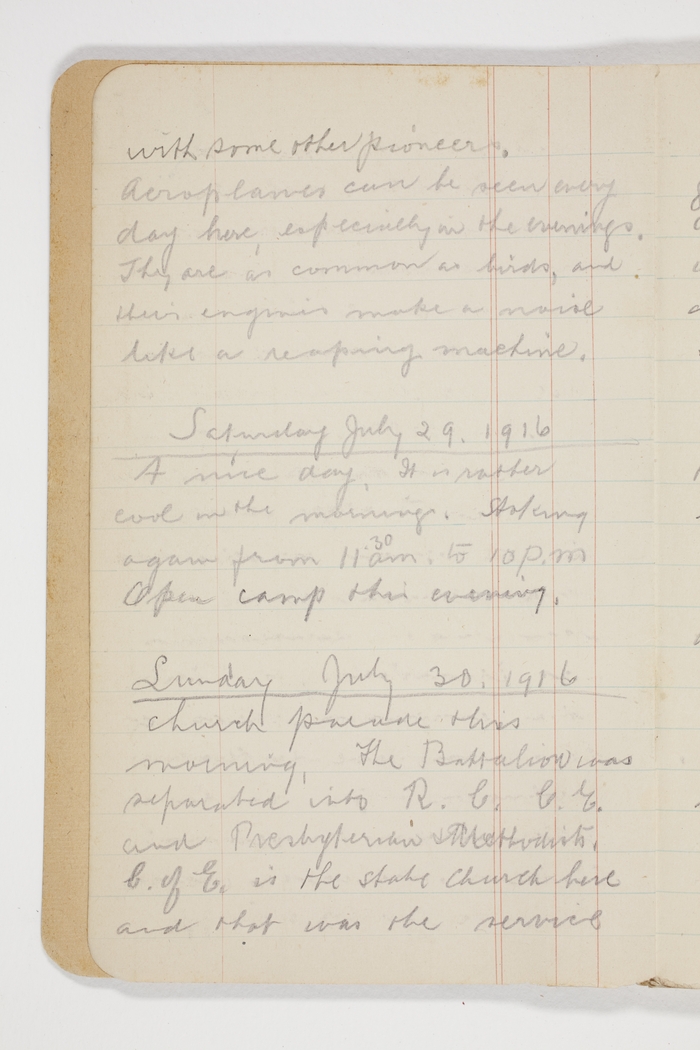 with some other pioneers.
Aeroplanes can be seen every
day here, especially in the evenings.
They are as common as birds, and
their engines make a noise
like a reaping machine.
Saturday July 29. 1916
A nice day. It is rather
cool in the morning. Stoking
again from 11.30 am. to 10 p.m
Open camp this evening.
Sunday July 30. 1916
Church parade this
morning, The Battalion was
separated into R. C. C. E.
and Presbyterian & Methodists.
C. of E. is the state church here
and that was the service